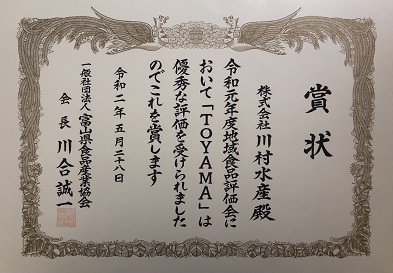 賞状
株式会社 川村水産 殿
令和元年度地域食品評価会に
おいて「TOYAMA」は
優秀な評価を受けられました
のでこれを賞します
令和二年五月二十八日
一般社団法人 富山県食品産業協会
会長 川合誠一